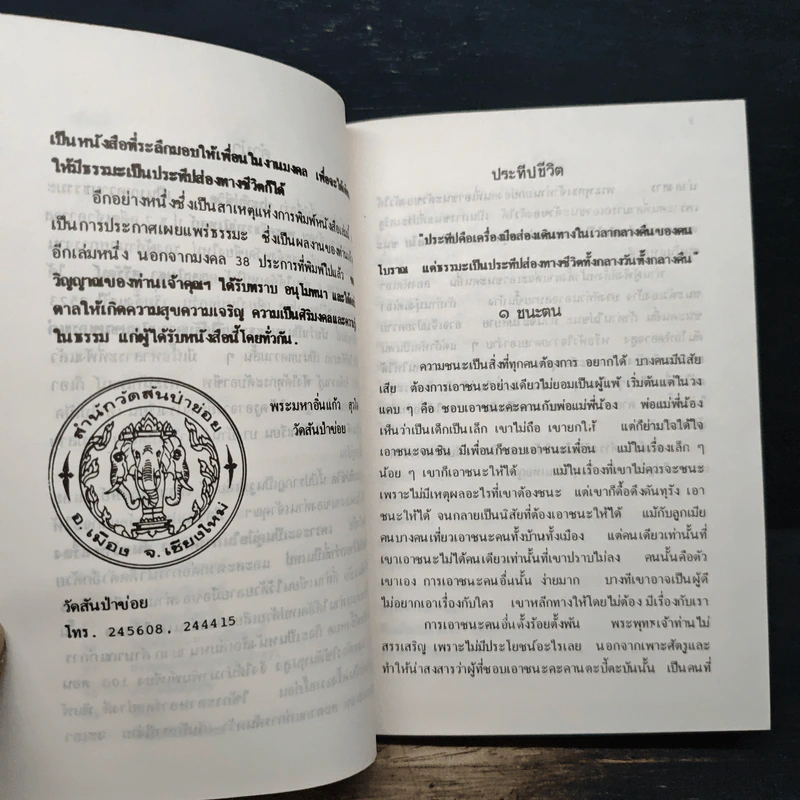 เป็นหนังสือที่ระลึกมอบให้เพื่อนในงานมงคล เพื่อจะได้
ให้มีธรรมะเป็นประทีปส่องทางชีวิตก็ได้
อีกอย่างหนึ่งซึ่งเป็นสาเหตุแห่งการพิมพ์หนังสือเล่มนี้
เป็นการประกาศเผยแพร่ธรรมะ ซึ่งเป็นผลงานของท่าน
อีกเล่มหนึ่ง นอกจากมงคล 38 ประการที่พิมพ์ไปแล้ว
วิญญาณของท่านเจ้าคุณฯ ได้รับทราบ อนุโมทนา และได้
ดาลให้เกิดความสุขความเจริญ ความเป็นศิริมงคลและความ
ในธรรม แก่ผู้ได้รับหนังสือนี้โดยทั่วกัน.
พระมหาอิ่นแก้ว
วัดสันป่าข่อย
สำนักวัดสันป่าข่อย
อ.เมือง จ.เชียงใหม่
วัดสันป่าข่อย
โทร. 245608, 244415
ประทีปชีวิต
"ประทีปคือเครื่องมือส่องเดินทางในเวลากลางคืนของคน
โบราณ แต่ธรรมะเป็นประทีปส่องทางชีวิตทั้งกลางวันทั้งกลางคืน"
๑ ชนะตน
ความชนะเป็นสิ่งที่ทุกคนต้องการ อยากได้ บางคนมีนิสัย
เสีย ต้องการเอาชนะอย่างเดียวไม่ยอมเป็นผู้แพ้ เริ่มต้นแต่ในวง
แคบ ๆ คือ ชอบเอาชนะคะคานกับพ่อแม่พี่น้อง พ่อแม่พี่น้อง
เห็นว่าเป็นเด็กเป็นเล็ก เขาไม่ถือ เขายกให้ แต่ก็ย่ามใจได้ใจ
เอาชนะจนชิน มีเพื่อนก็ชอบเอาชนะเพื่อน แม้ในเรื่องเล็ก ๆ
น้อย ๆ เขาก็เอาชนะให้ได้ แม้ในเรื่องที่เขาไม่ควรจะชนะ
เพราะไม่มีเหตุผลอะไรที่เขาต้องชนะ แต่เขาก็ดื้อดึงดันทุรัง เอา
ชนะให้ได้ จนกลายเป็นนิสัยที่ต้องเอาชนะให้ได้ แม้กับลูกเมีย
คนบางคนเที่ยวเอาชนะคนทั้งบ้านทั้งเมือง แต่คนเดียวเท่านั้นที่
เขาเอาชนะไม่ได้คนเดียวเท่านั้นที่เขาปราบไม่ลง คนนั้นคือตัว
เขาเอง การเอาชนะคนอื่นนั้น ง่ายมาก บางทีเขาอาจเป็นผู้ดี
ไม่อยากเอาเรื่องกับใคร เขาหลีกทางให้โดยไม่ต้อง มีเรื่องกับเรา
การเอาชนะคนอื่นตั้งร้อยตั้งพัน พระพุทธเจ้าท่านไม่
สรรเสริญ เพราะไม่มีประโยชน์อะไรเลย นอกจากเพาะศัตรูและ
ทำให้น่าสงสารว่าผู้ที่ชอบเอาชนะคะคานตะบี้ตะบันนั้น เป็นคนที่